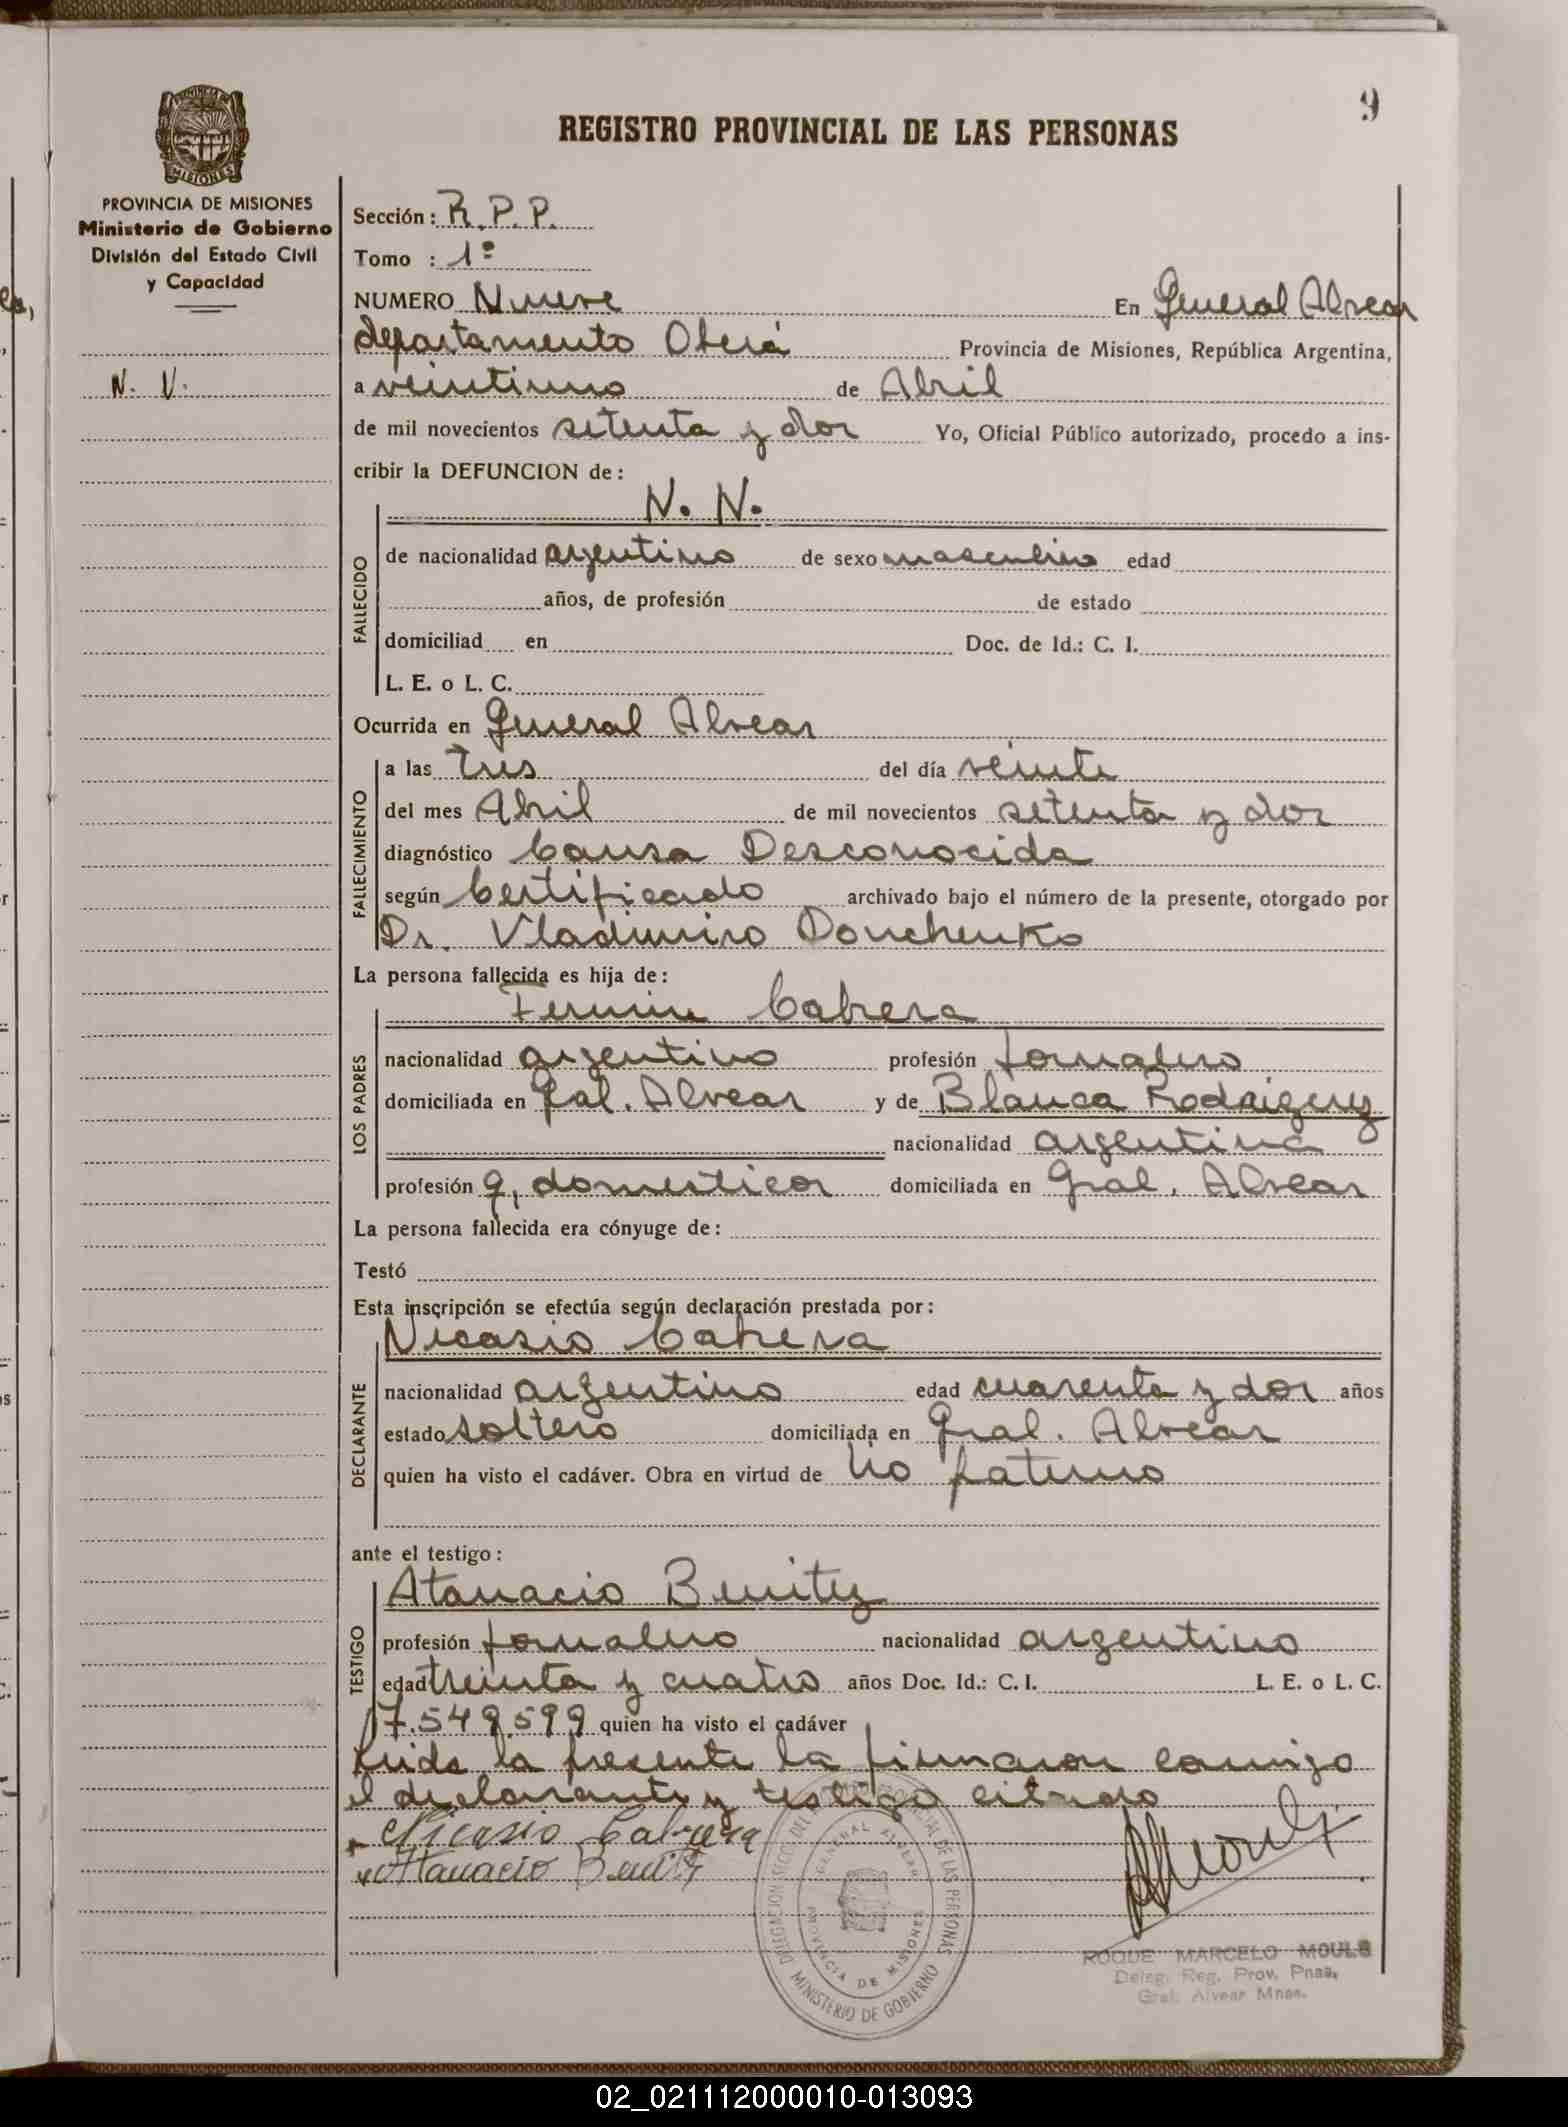 9
REGISTRO PROVINCIAL DE LAS PERSONAS
PROVINCIA DE MISIONES
Ministerio de Gobierno
División del Estado Civil
y Capacidad
N. V.
Sección: R.P.P.
Tomo : 1º
NUMERO Nueve En General Alvear
departamento Oberá Provincia de Misiones, República Argentina,
a veintiuno de Abril
de mil novecientos setenta y dos Yo, Oficial Público autorizado, procedo a ins-
cribir la DEFUNCION de:
N. N.
FALLECIDO
de nacionalidad argentino de sexo masculino edad
años, de profesión de estado
domiciliad en Doc. de Id.: C. I.
L. E. o L. C.
Ocurrida en General Alvear
FALLECIMIENTO
a las tres del día veinte
del mes Abril de mil novecientos setenta y dos
diagnóstico Causa Desconocida
según Certificado archivado bajo el número de la presente, otorgado por
Dr. Vladimiro Douchenko
La persona fallecida es hija de:
Fermin Cabrera
LOS PADRES
nacionalidad argentino profesión Jornalero
domiciliada en Gral. Alvear y de Blanca Rodriguez
nacionalidad argentina
profesión q. domesticos domiciliada en Gral. Alvear
La persona fallecida era cónyuge de:
Testó
Esta inscripción se efectúa según declaración prestada por:
Nicasio Cabrera
DECLARANTE
nacionalidad argentino edad cuarenta y dos años
estado soltero domiciliada en Gral. Alvear
quien ha visto el cadáver. Obra en virtud de tio paterno
ante el testigo:
Atanacio Benitez
TESTIGO
profesión Jornalero nacionalidad argentino
edad treinta y cuatro años Doc. Id.: C. I. L. E. o L. C.
7.549.599 quien ha visto el cadáver
Leida la presente la firmaron conmigo
el declarante y testigo citado
Nicasio Cabrera
Atanacio Benitez
DELEGACION SECC. DEL REGISTRO PROVINCIAL DE LAS PERSONAS
GENERAL ALVEAR
PROVINCIA DE MISIONES
MINISTERIO DE GOBIERNO
ROQUE MARCELO MOULS
Deleg. Reg. Prov. Pnas.
Gral. Alvear Mnes.
02_021112000010-013093